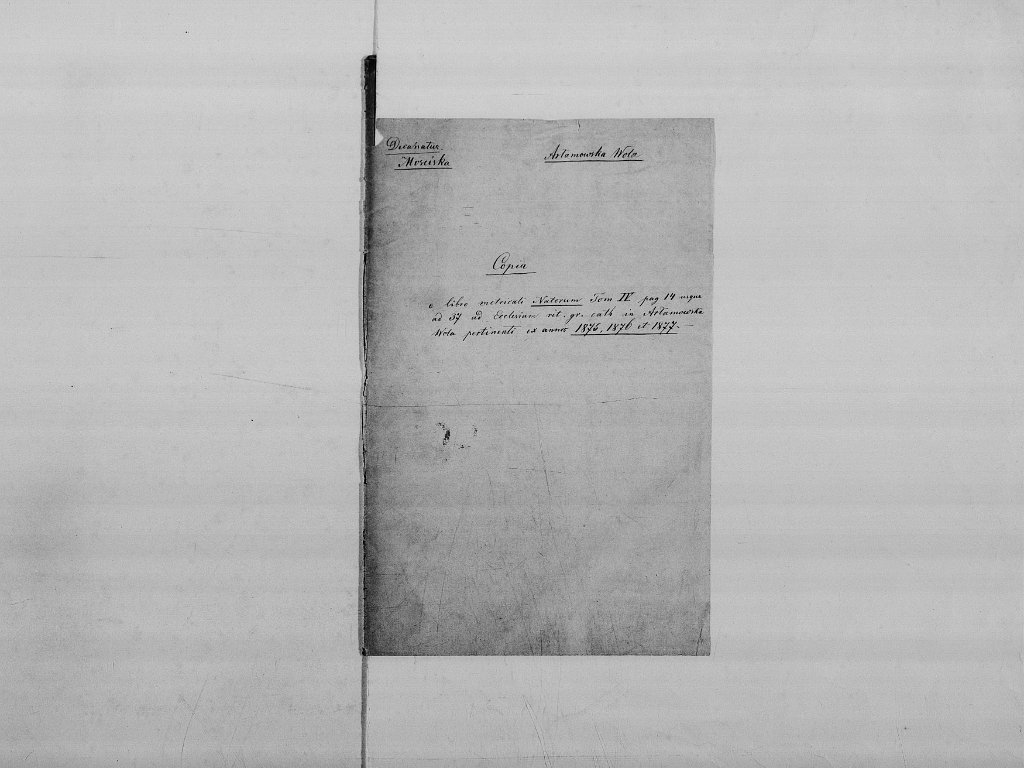 Decanatus
Mosciska
Artamowska Wola
Copia
e libro metricali Natorum Tom IV pag 14 usque
ad 37 ad Ecclesiam rit. gr. cath in Artamowska
Wola pertinenti ex annis 1875, 1876 et 1877. —